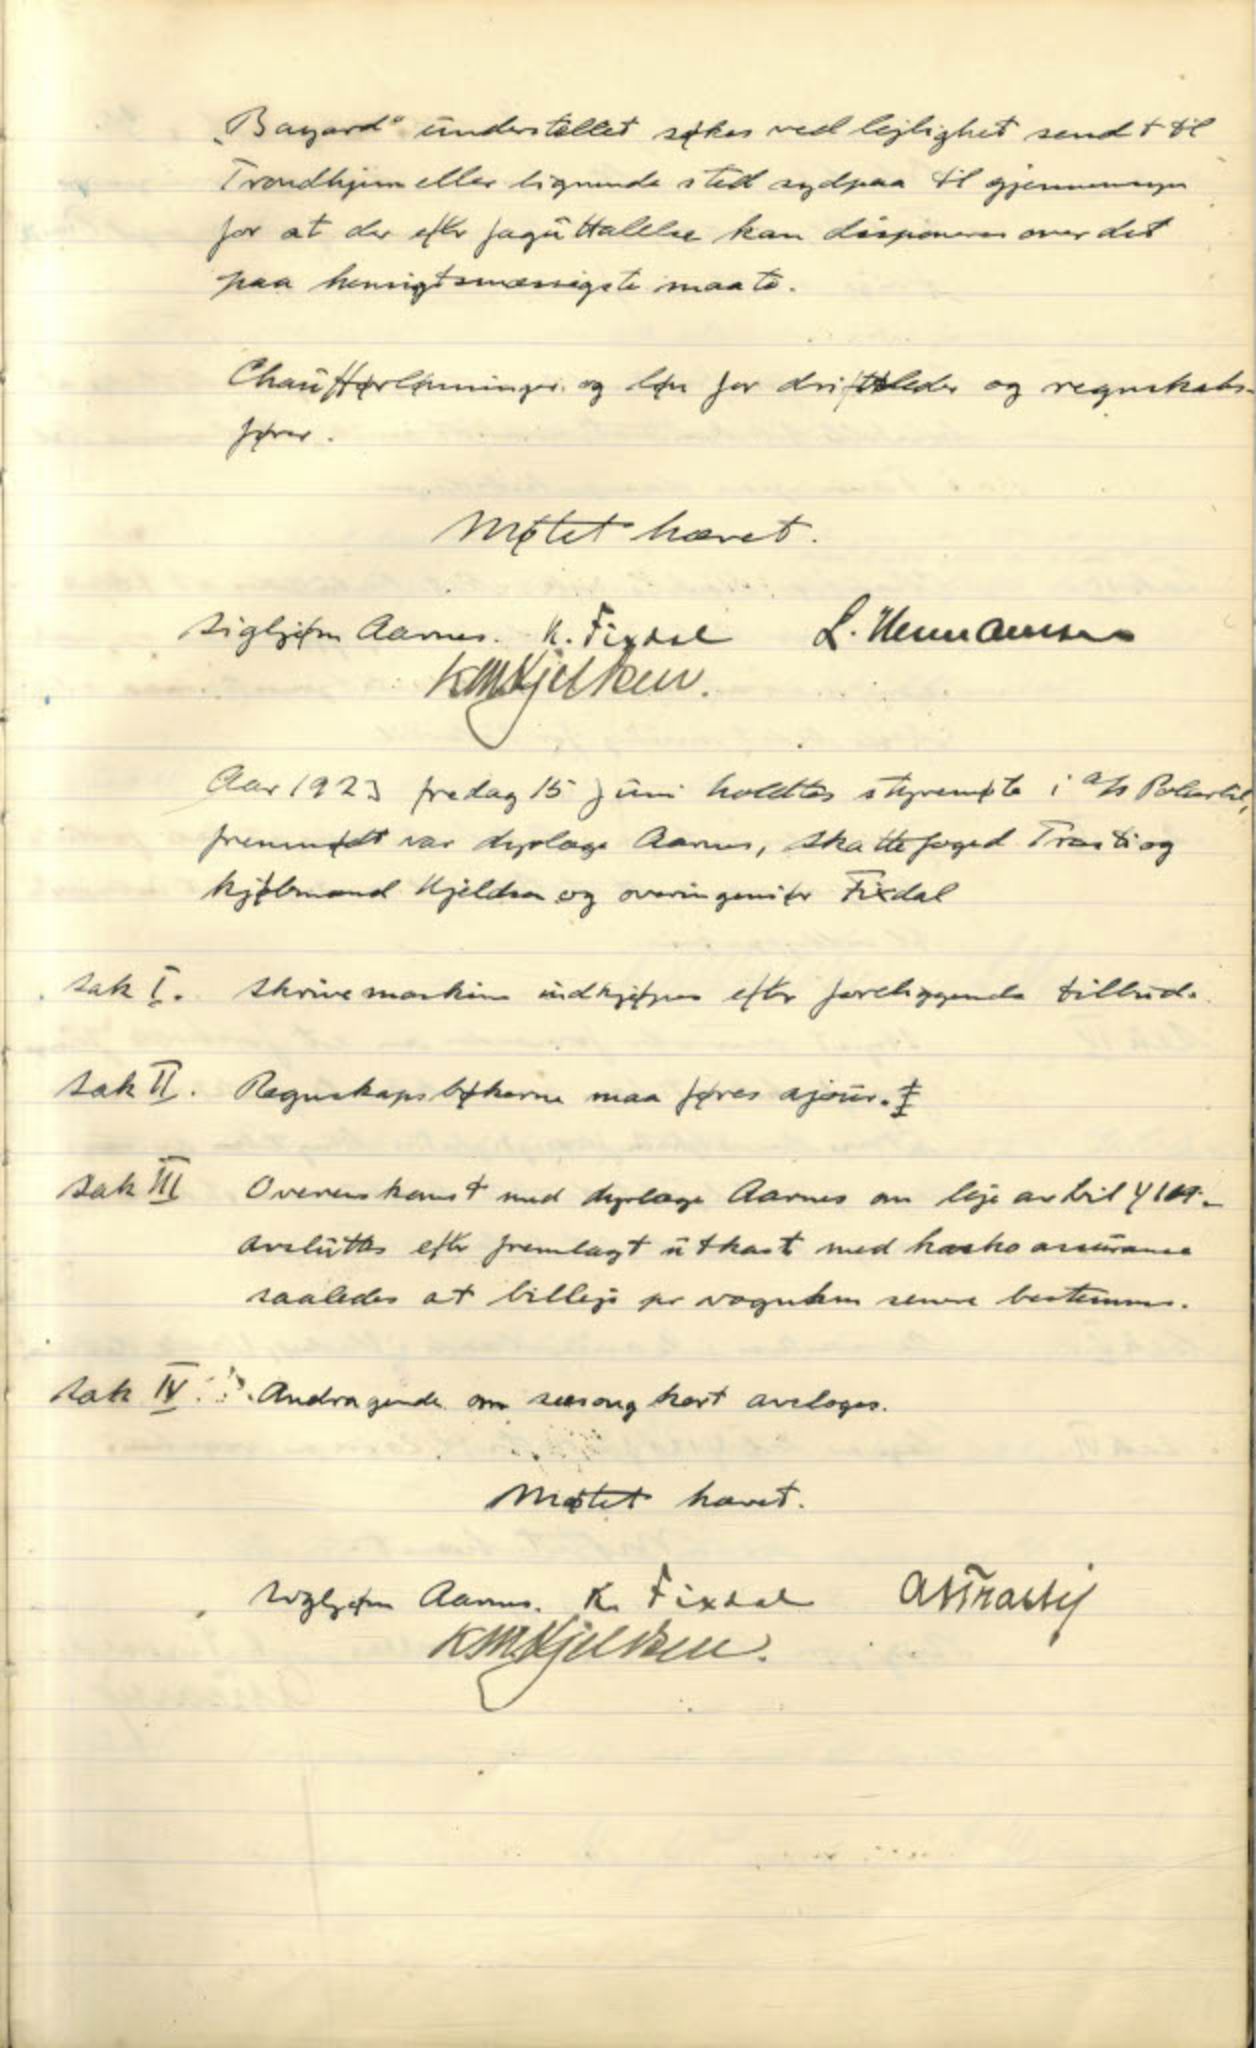 "Bayard" understellet søkes ved leilighet sendt til
Trondhjem eller lignende sted sydpaa til gjennemsyn
for at der efter faguttalelse kan disponeres over det
paa hensigtsmæssigste maate.
Chaufførlønninger og løn for driftsleder og regnskabs-
fører.
Møtet hævet.
Sigbjørn Aarnes. K. Fixdal L. Hermansen
KM Kjeldsen.
Aar 1923 fredag 15 juni holdtes styremøte i A/S Polarbil,
fremmødt var dyrlæge Aarnes, skattefoged Trasti og
kjøbmand Kjeldsen og overingeniør Fixdal
Sak I. Skrivemaskine indkjøpes efter foreliggende tilbud.
Sak II. Regnskapsbøkerne maa føres ajour.
Sak III Overenskomst med dyrlæge Aarnes om leje av bil Y 109.
avsluttes efter fremlagt utkast med kasko assurance
saaledes at billeje pr vognkm senere bestemmes.
Sak IV. Andragende om sæsong kort avslåges.
Møtet hævet.
Sigbjørn Aarnes. K. Fixdal A Trasti
KM Kjeldsen.